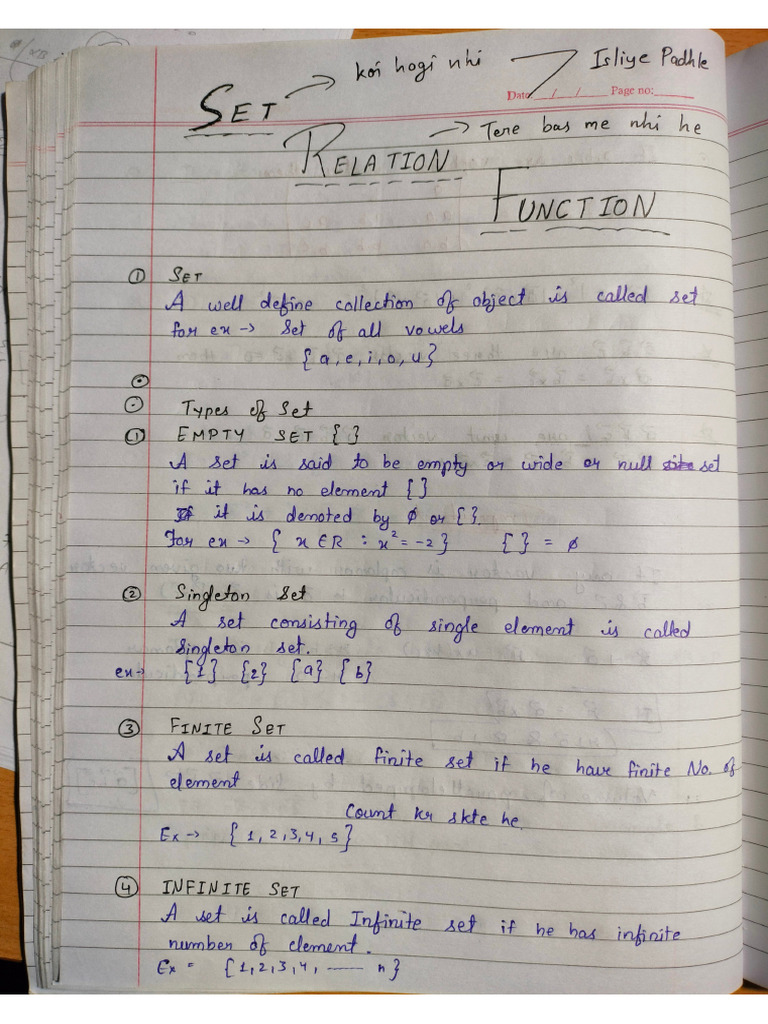 koi hogi nhi Isliye Padhle
Date __/__/____ Page no:______
SET
Tere bas me nhi he
RELATION
FUNCTION
① SET
A well define collection of object is called set
for ex → Set of all vowels
{a, e, i, o, u}
Types of Set
① EMPTY SET { }
A set is said to be empty or wide or null set
if it has no element { }
it is denoted by ϕ or { }
For ex → { x ∈ R : x² = -2 } { } = ϕ
② Singleton Set
A set consisting of single element is called
singleton set.
ex→ {1} {2} {a} {b}
③ FINITE SET
A set is called finite set if he have finite No. of
element
Count kr skte he.
Ex → {1, 2, 3, 4, 5}
④ INFINITE SET
A set is called Infinite set if he has infinite
number of element.
Ex = {1, 2, 3, 4, ----- n}